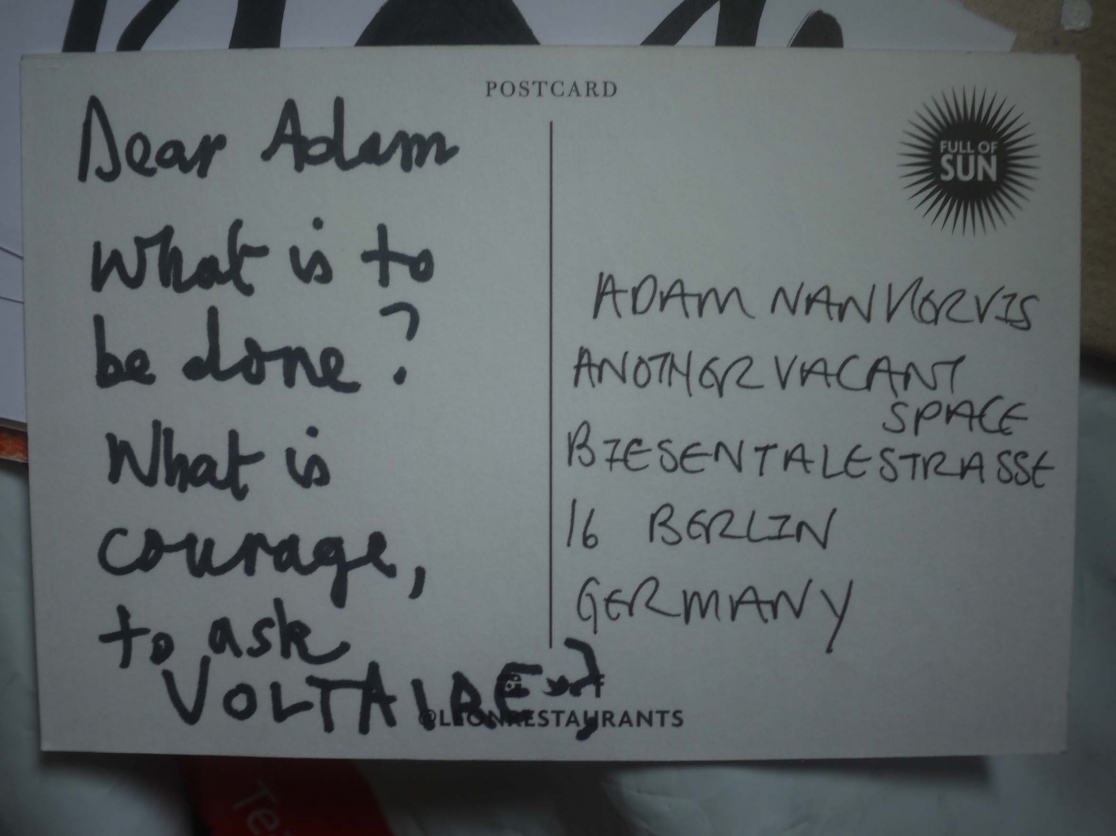 POSTCARD
Dear Adam
What is to
be done?
What is
courage,
to ask
VOLTAIRE
FULL OF
SUN
ADAM NANKERVIS
ANOTHER VACANT
SPACE
BIESENTALESTRASSE
16 BERLIN
GERMANY
@LEONRESTAURANTS
Te